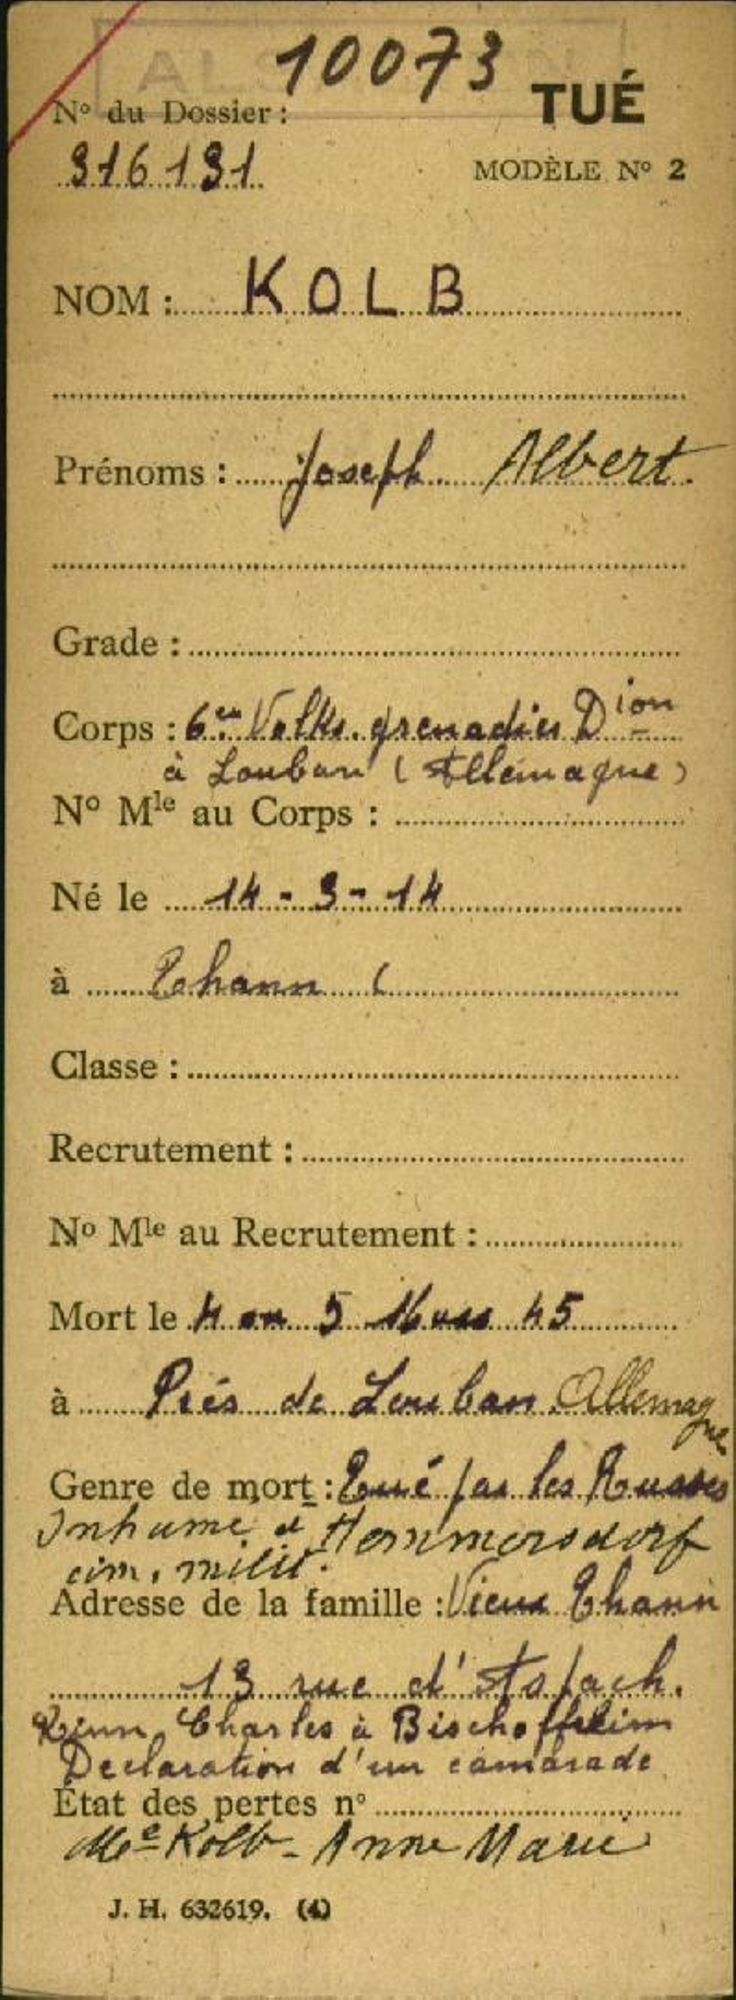 10073
TUÉ
N° du Dossier :
316191
MODÈLE N° 2
NOM : KOLB
Prénoms : Joseph Albert
Grade :
Corps : 6e Volks. grenadier Dion
à Louban (Allemagne)
N° Mle au Corps :
Né le 14 - 3 - 14
à Thann (
Classe :
Recrutement :
N° Mle au Recrutement :
Mort le 4 ou 5 Mars 45
à Près de Louban Allemagne
Genre de mort : Tué par les Russes
Inhumé à Hommersdorf
cim. milit.
Adresse de la famille : Vieux Thann
13 rue d'Aspach.
Charles à Bischoffheim
Declaration d'un camarade
État des pertes n°
Me Kolb - Anne Marie
J. H. 632619. (4)